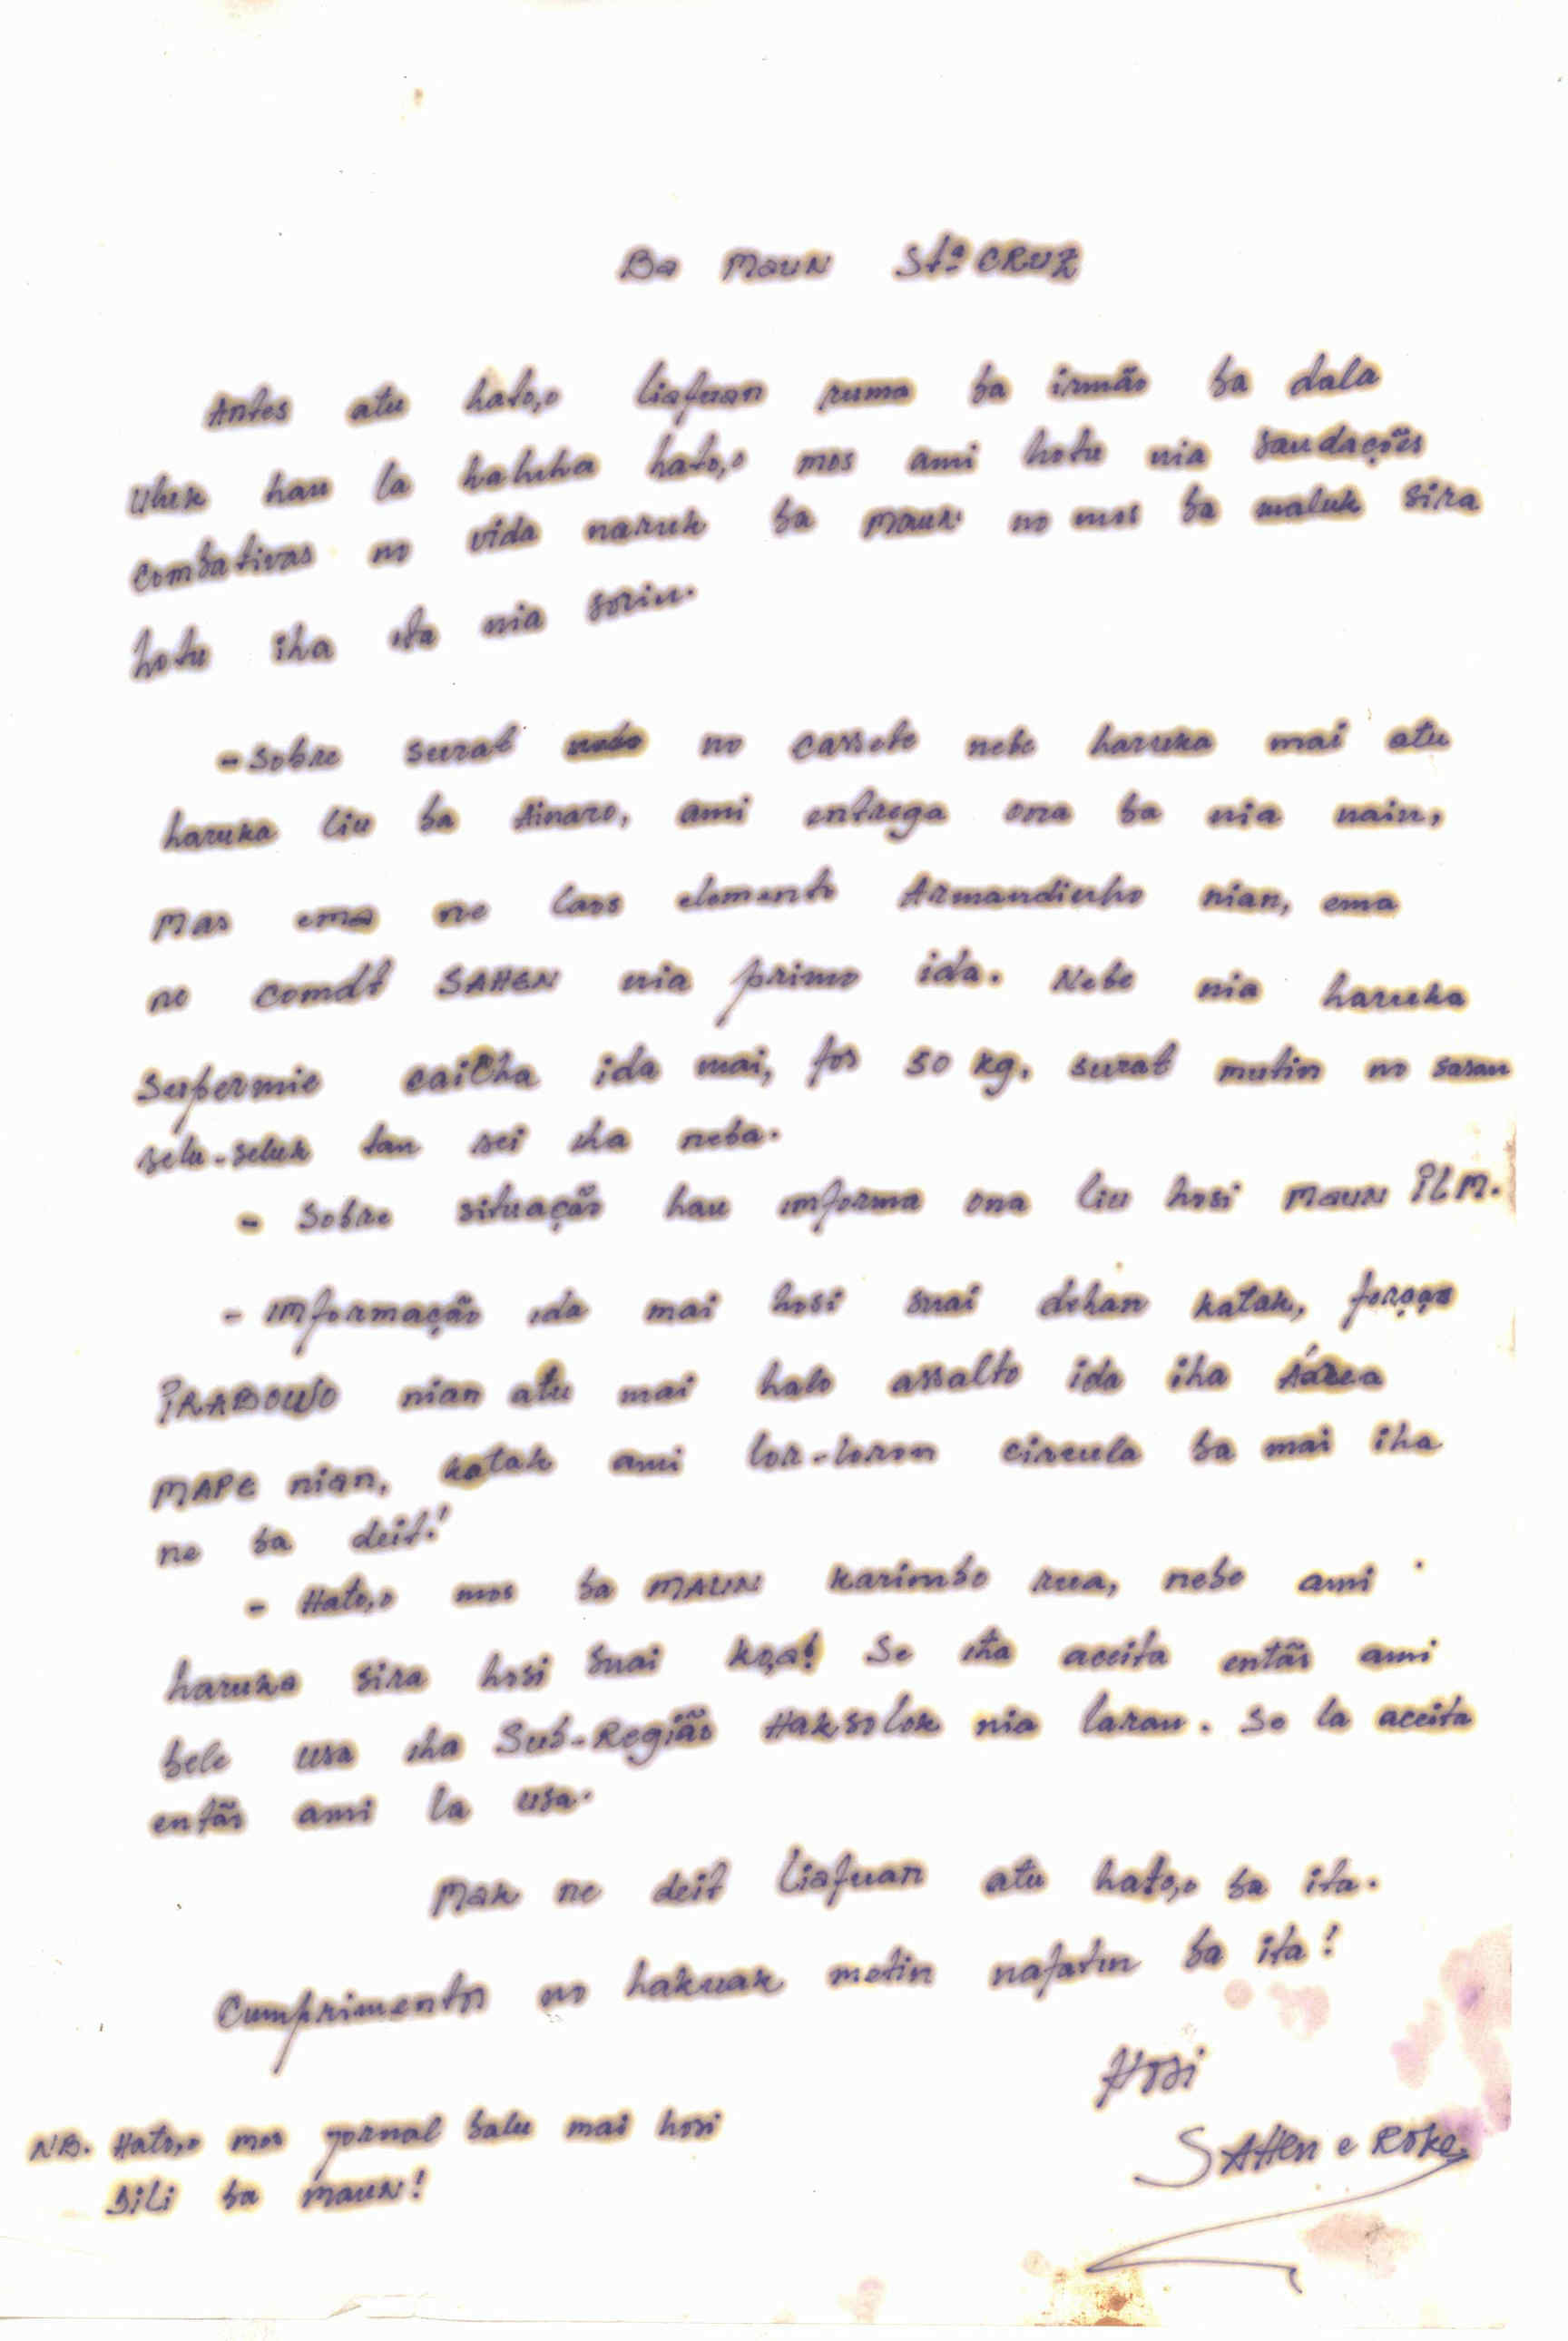 Ba Maun Stª CRUZ
Antes atu hato,o liafuan ruma ba irmão ba dala
Uluk hau la haluha hato,o mos ami hotu nia saudações
Combativas no vida naruk ba Maun no mos ba maluk sira
hotu iha ita nia sorin.
- Sobre surat no cassete nebe haruka mai atu
haruka liu ba Ainaro, ami entrega ona ba nia nain,
Mas ema ne laos elemento Armandinho nian, ema
ne Comdt SAHEN nia primo ida. Nebe nia haruka
Supermie caicha ida mai, fos 50 kg, surat mutin no sasan
selu-seluk tan sei iha neba.
- Sobre situação hau informa ona liu hosi Maun P.L.M.
- Imformação ida mai hosi Suai dehan katak, forças
PRABOWO nian atu mai halo assalto ida iha Área
MAPE nian, katak ami lor-loron circula ba mai iha
ne ba deit!
- Hato,o mos ba MAUN Karimbo rua, nebe ami
haruka sira hosi Suai ko,a! Se ita aceita então ami
bele usa iha Sub-Região Haksolok nia laran. Se la aceita
então ami la usa.
Mak ne deit liafuan atu hato,o ba ita.
Cumprimentos no hakuak metin nafatin ba ita!
Hosi
SAHEN e Roke
NB. Hato,o mos jornal balu mai hosi
Dili ba Maun!